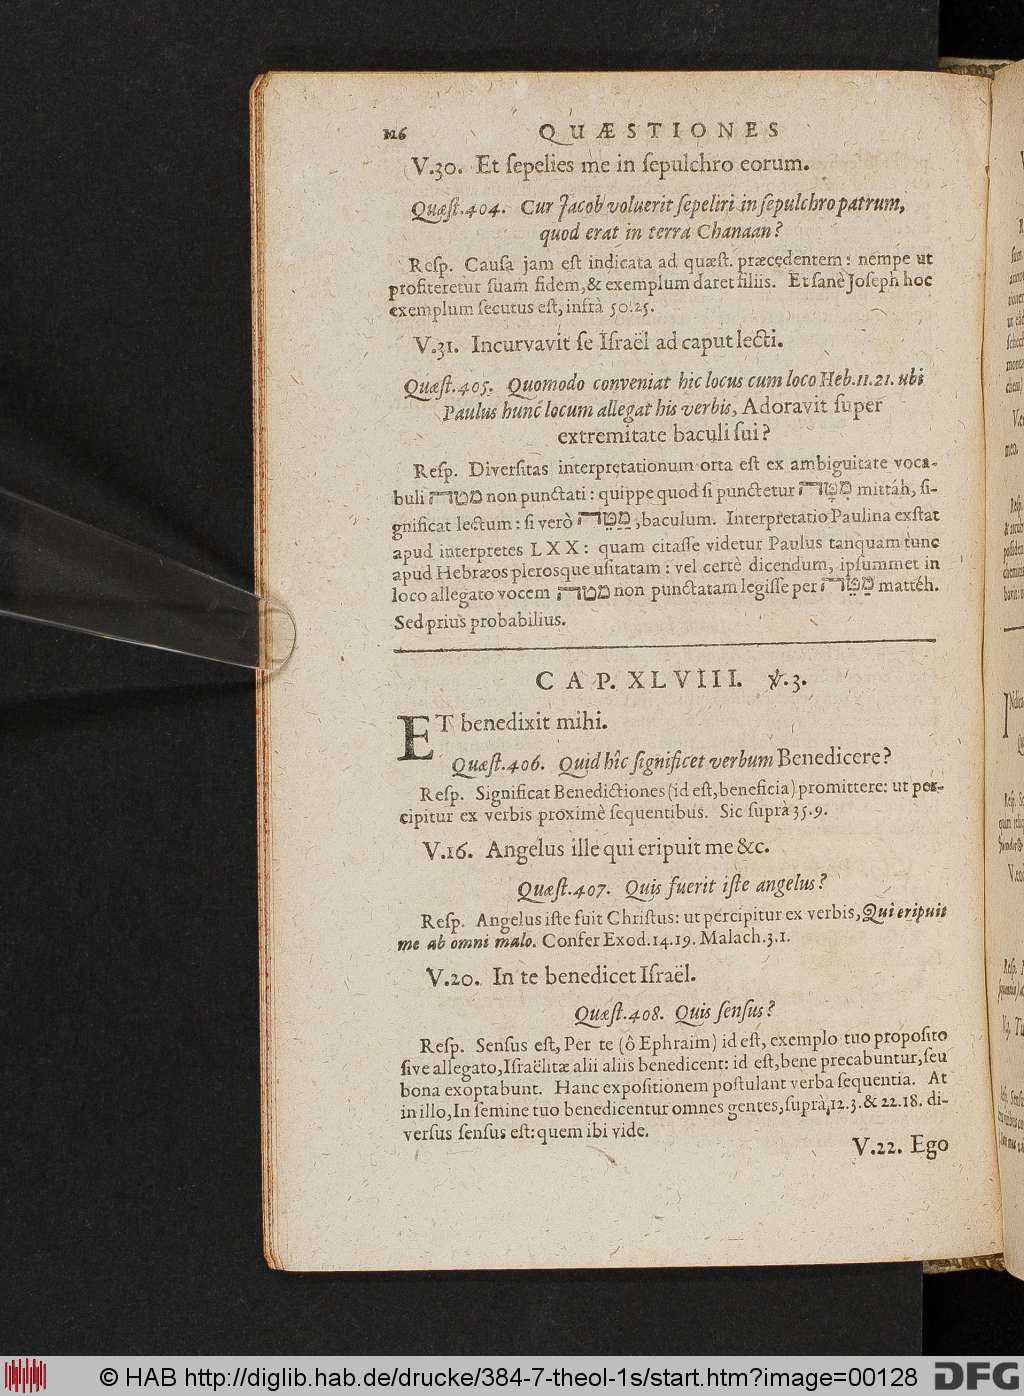 126 QUÆSTIONES
V.30. Et ſepelies me in ſepulchro eorum.
Quæſt.404. Cur Jacob voluerit ſepeliri in ſepulchro patrum,
quod erat in terra Chanaan?
Reſp. Cauſa jam eſt indicata ad quæſt. præcedentem: nempe ut
profiteretur ſuam fidem,& exemplum daret filiis. Et ſanè Joſeph hoc
exemplum ſecutus eſt, infrà 50.25.
V.31. Incurvavit ſe Iſraël ad caput lecti.
Quæſt.405. Quomodo conveniat hic locus cum loco Heb.11.21. ubi
Paulus hunc locum allegat his verbis, Adoravit ſuper
extremitate baculi ſui?
Reſp. Diverſitas interpretationum orta eſt ex ambiguitate voca-
buli מטה non punctati: quippe quod ſi punctetur מִטָּה mittáh, ſi-
gnificat lectum: ſi verò מַטֶּה, baculum. Interpretatio Paulina exſtat
apud interpretes LXX: quam citaſſe videtur Paulus tanquam tunc
apud Hebræos plerosque uſitatam: vel certè dicendum, ipſummet in
loco allegato vocem מטה non punctatam legiſſe per מַטֵּה mattéh.
Sed prius probabilius.
CAP. XLVIII. ℣.3.
ET benedixit mihi.
Quæſt.406. Quid hîc ſignificet verbum Benedicere?
Reſp. Significat Benedictiones (id eſt, beneficia) promittere: ut per-
cipitur ex verbis proximè ſequentibus. Sic ſuprà 35.9.
V.16. Angelus ille qui eripuit me &c.
Quæſt.407. Quis fuerit iſte angelus?
Reſp. Angelus iſte fuit Chriſtus: ut percipitur ex verbis, Qui eripuit
me ab omni malo. Confer Exod.14.19. Malach.3.1.
V.20. In te benedicet Iſraël.
Quæſt.408. Quis ſenſus?
Reſp. Senſus eſt, Per te (ô Ephraim) id eſt, exemplo tuo propoſito
ſive allegato, Iſraëlitæ alii aliis benedicent: id eſt, bene precabuntur, ſeu
bona exoptabunt. Hanc expoſitionem poſtulant verba ſequentia. At
in illo, In ſemine tuo benedicentur omnes gentes, ſuprà, 12.3. & 22.18. di-
verſus ſenſus eſt: quem ibi vide.
V.22. Ego
© HAB http://diglib.hab.de/drucke/384-7-theol-1s/start.htm?image=00128
DFG